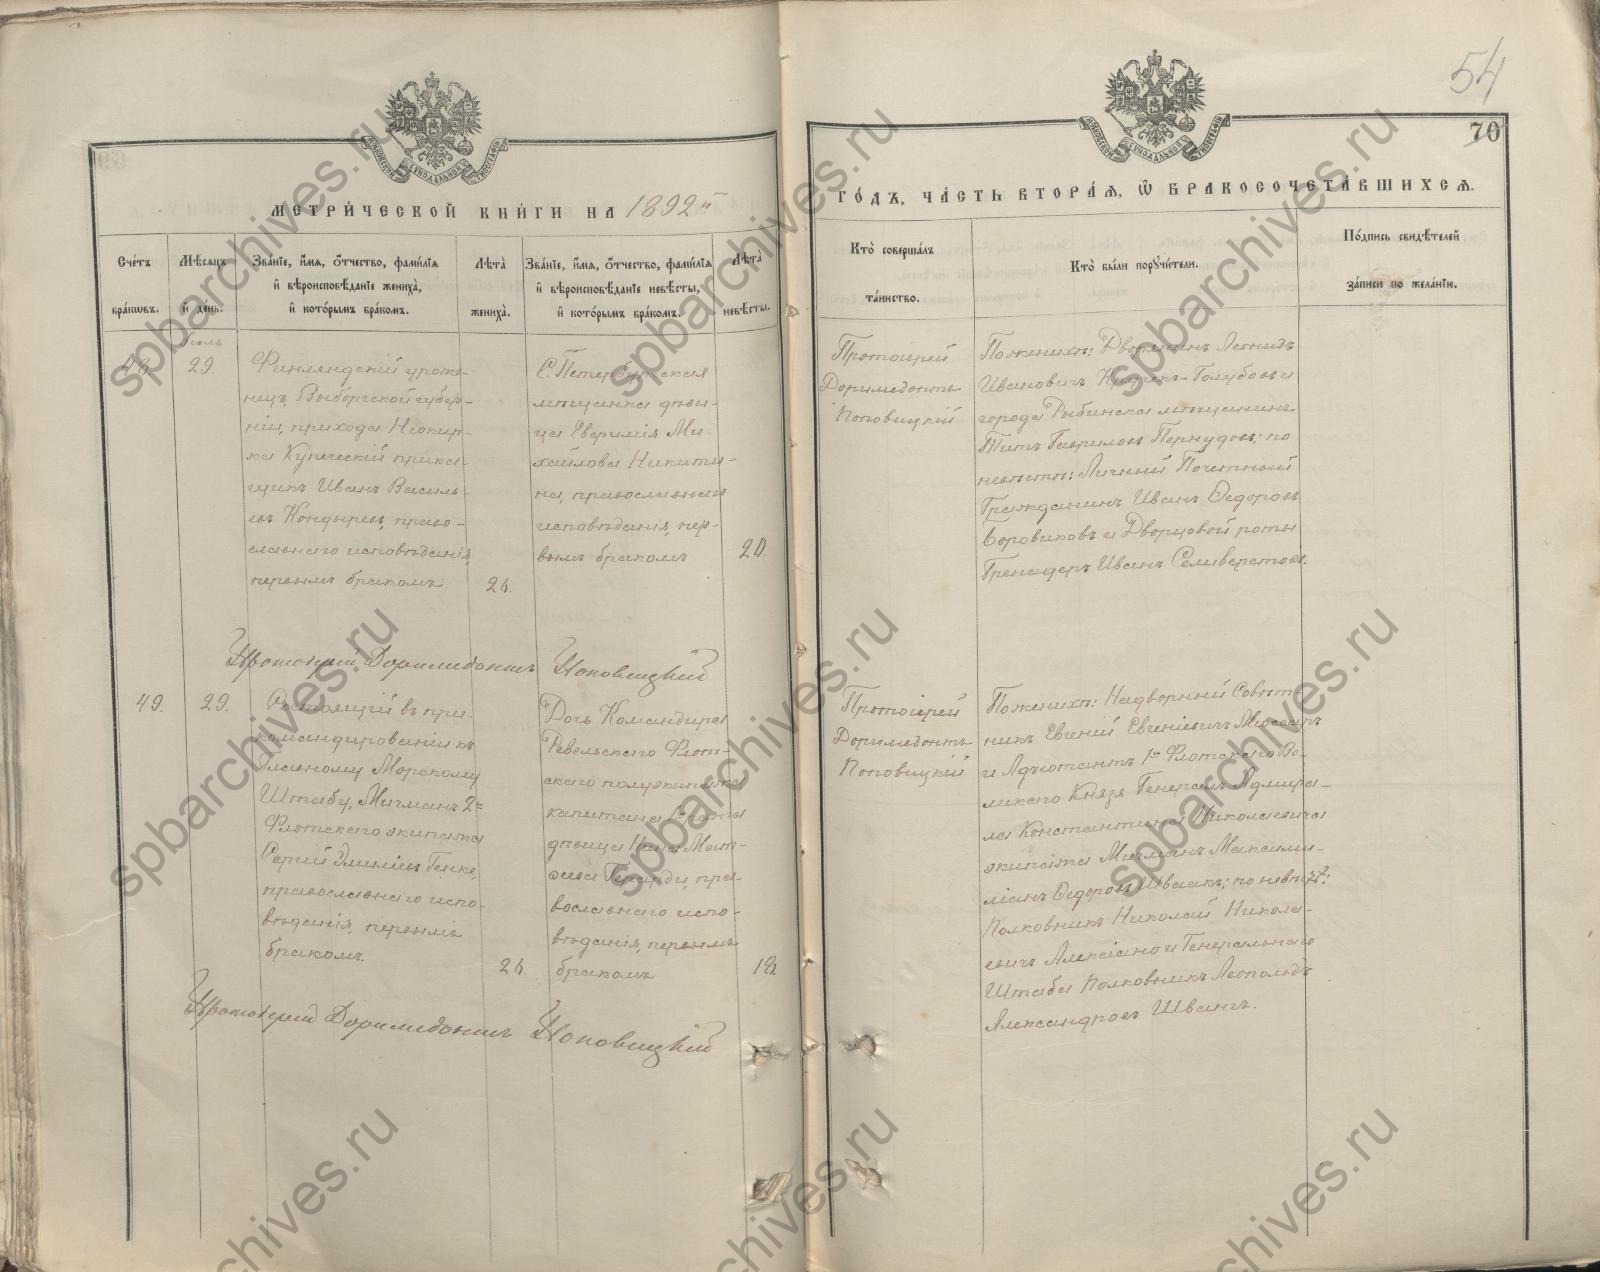 54
70
МЕТРИ́ЧЕСКОЙ КНИ́ГИ НА 1892й
ГО́ДЪ, ЧА́СТЬ ВТОРА́Я, Ѿ БРАКОСОЧЕТА́ВШИХСЯ.
Сче́тъ
бра́кѡвъ.
Мѣ́сяцъ
и де́нь.
Зва́нїе, и́мя, о́тчество, фами́лїя
и вѣроисповѣ́данїе жениха̀,
и кото́рымъ бра́комъ.
Лѣта̀
жениха̀.
Зва́нїе, и́мя, о́тчество, фами́лїя
и вѣроисповѣ́данїе невѣ́сты,
и кото́рымъ бра́комъ.
Лѣта̀
невѣ́сты.
Кто̀ соверша́лъ
та́инство.
Кто̀ бы́ли поручи́тели.
По́дпись свидѣ́телей
за́писи по жела́нїю.
Іюль
48.
29.
Финляндскій уроже-
нецъ, Выборгской губер-
ніи, прихода Нюкир-
ка Купеческій прика-
щикъ Иванъ Василь-
евъ Кондыревъ, право-
славнаго исповѣданія,
первымъ бракомъ
26.
С. Петербургская
мѣщанка дѣви-
ца Евфимія Ми-
хайлова Никити-
на, православнаго
исповѣданія, пер-
вымъ бракомъ
20.
Протоіерей
Доримедонтъ
Поповицкій
По женихѣ: Дворянинъ Леонидъ
Ивановичъ -Голубовъ и
города Рыбинска мѣщанинъ
Титъ Гавриловъ по
невѣстѣ: Личный Почетный
Гражданинъ Иванъ Ѳедоровъ
Боровиковъ и Дворцовой роты
Гренадеръ Иванъ Селиверстовъ.
Протоіерей Доримедонтъ Поповицкій
49.
29.
Состоящій въ при-
командированіи къ
Главному Морскому
Штабу, Мичманъ 2го
Флотскаго экипажа
Сергій Эмиліевъ Генке,
православнаго испо-
вѣданія, первымъ
бракомъ.
26.
Дочь Командира
Ревельскаго Флот-
скаго полуэкипажа
капитана 1го ранга
дѣвица Нина Мат-
ѳеева Герарди, пра-
вославнаго испо-
вѣданія, первымъ
бракомъ
18.
Протоіерей
Доримедонтъ
Поповицкій
По женихѣ: Надворный Совѣт-
никъ Евгеній Евгеніевичъ
и Адъютантъ 1го Флотскаго Ве-
ликаго Князя Генералъ Адмира-
ла Константина Николаевича
экипажа Мичманъ Максими-
ліанъ Ѳедоровъ Шванкъ; по невѣстѣ:
Полковникъ Николай Никола-
евичъ Алексіано и Генеральнаго
Штаба Полковникъ Леопольдъ
Александровъ Швангъ.
Протоіерей Доримедонтъ Поповицкій
spbarchives.ru
spbarchives.ru
spbarchives.ru
spbarchives.ru
spbarchives.ru
spbarchives.ru